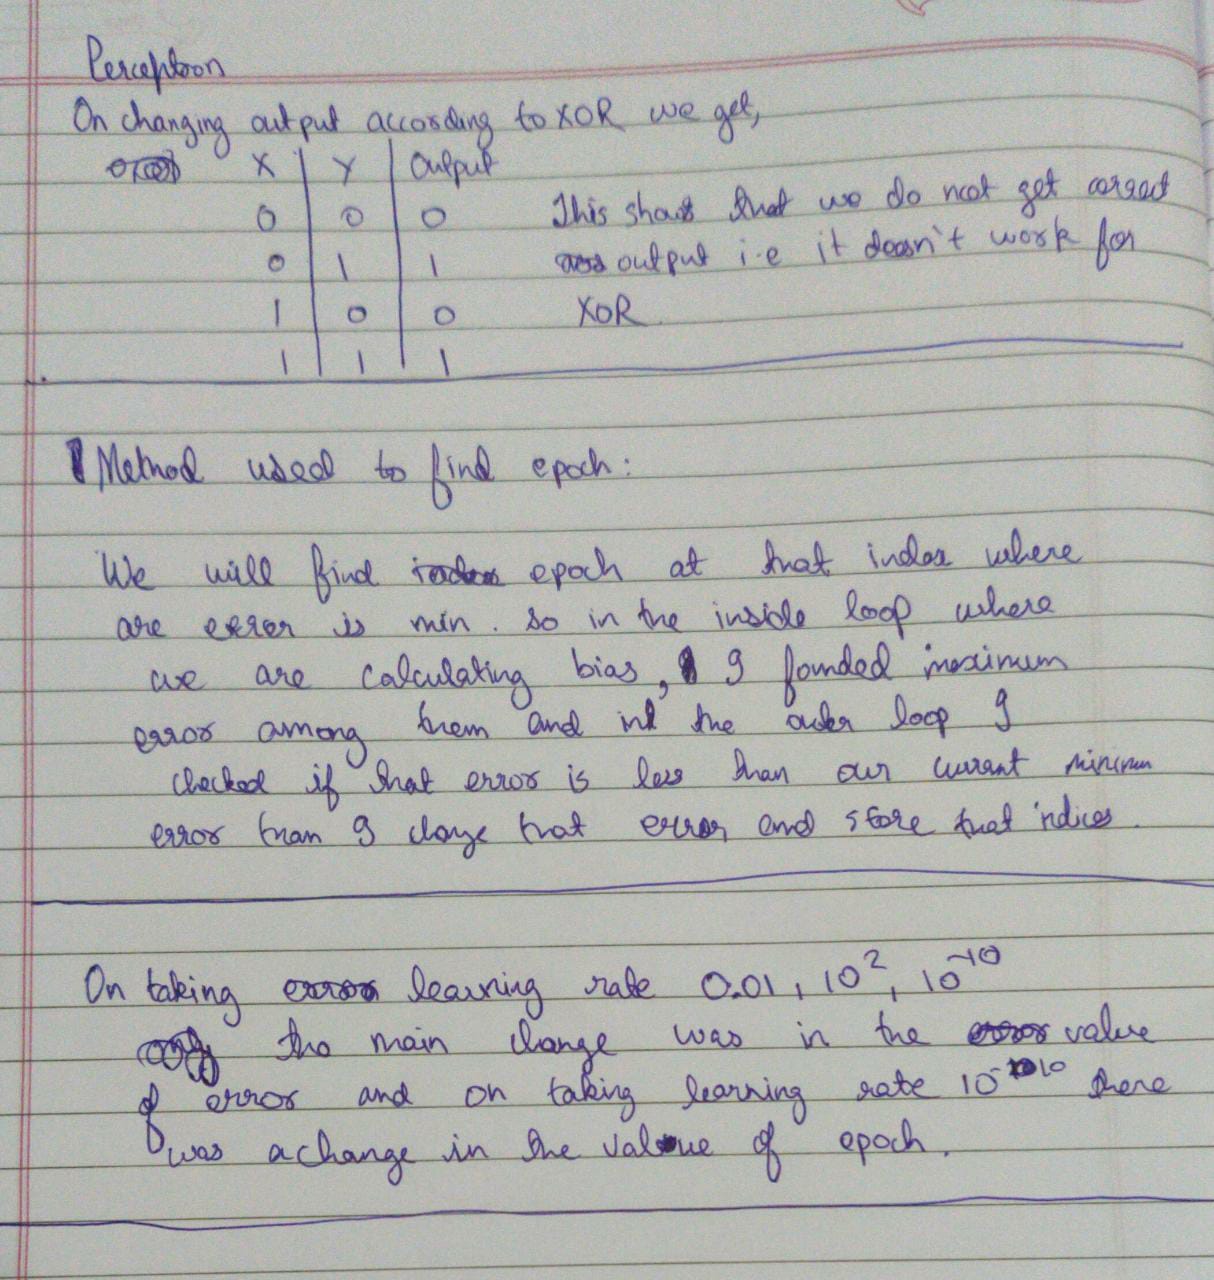 Perceptron
On changing output according to XOR we get,
X Y Output
0 0 0 This shows that we do not get correct
0 1 1 output i.e it doesn't work for
1 0 0 XOR
1 1 1
Method used to find epoch:
We will find epoch at that index where
are error is min. so in the inside loop where
we are calculating bias, I founded maximum
error among them and in the outer loop I
checked if that error is less than our current minimum
error than I change that error and store that indices.
On taking learning rate 0.01, 10², 10⁻¹⁰
the main change was in the value
of error and on taking learning rate 10⁻¹⁰ there
was a change in the value of epoch.